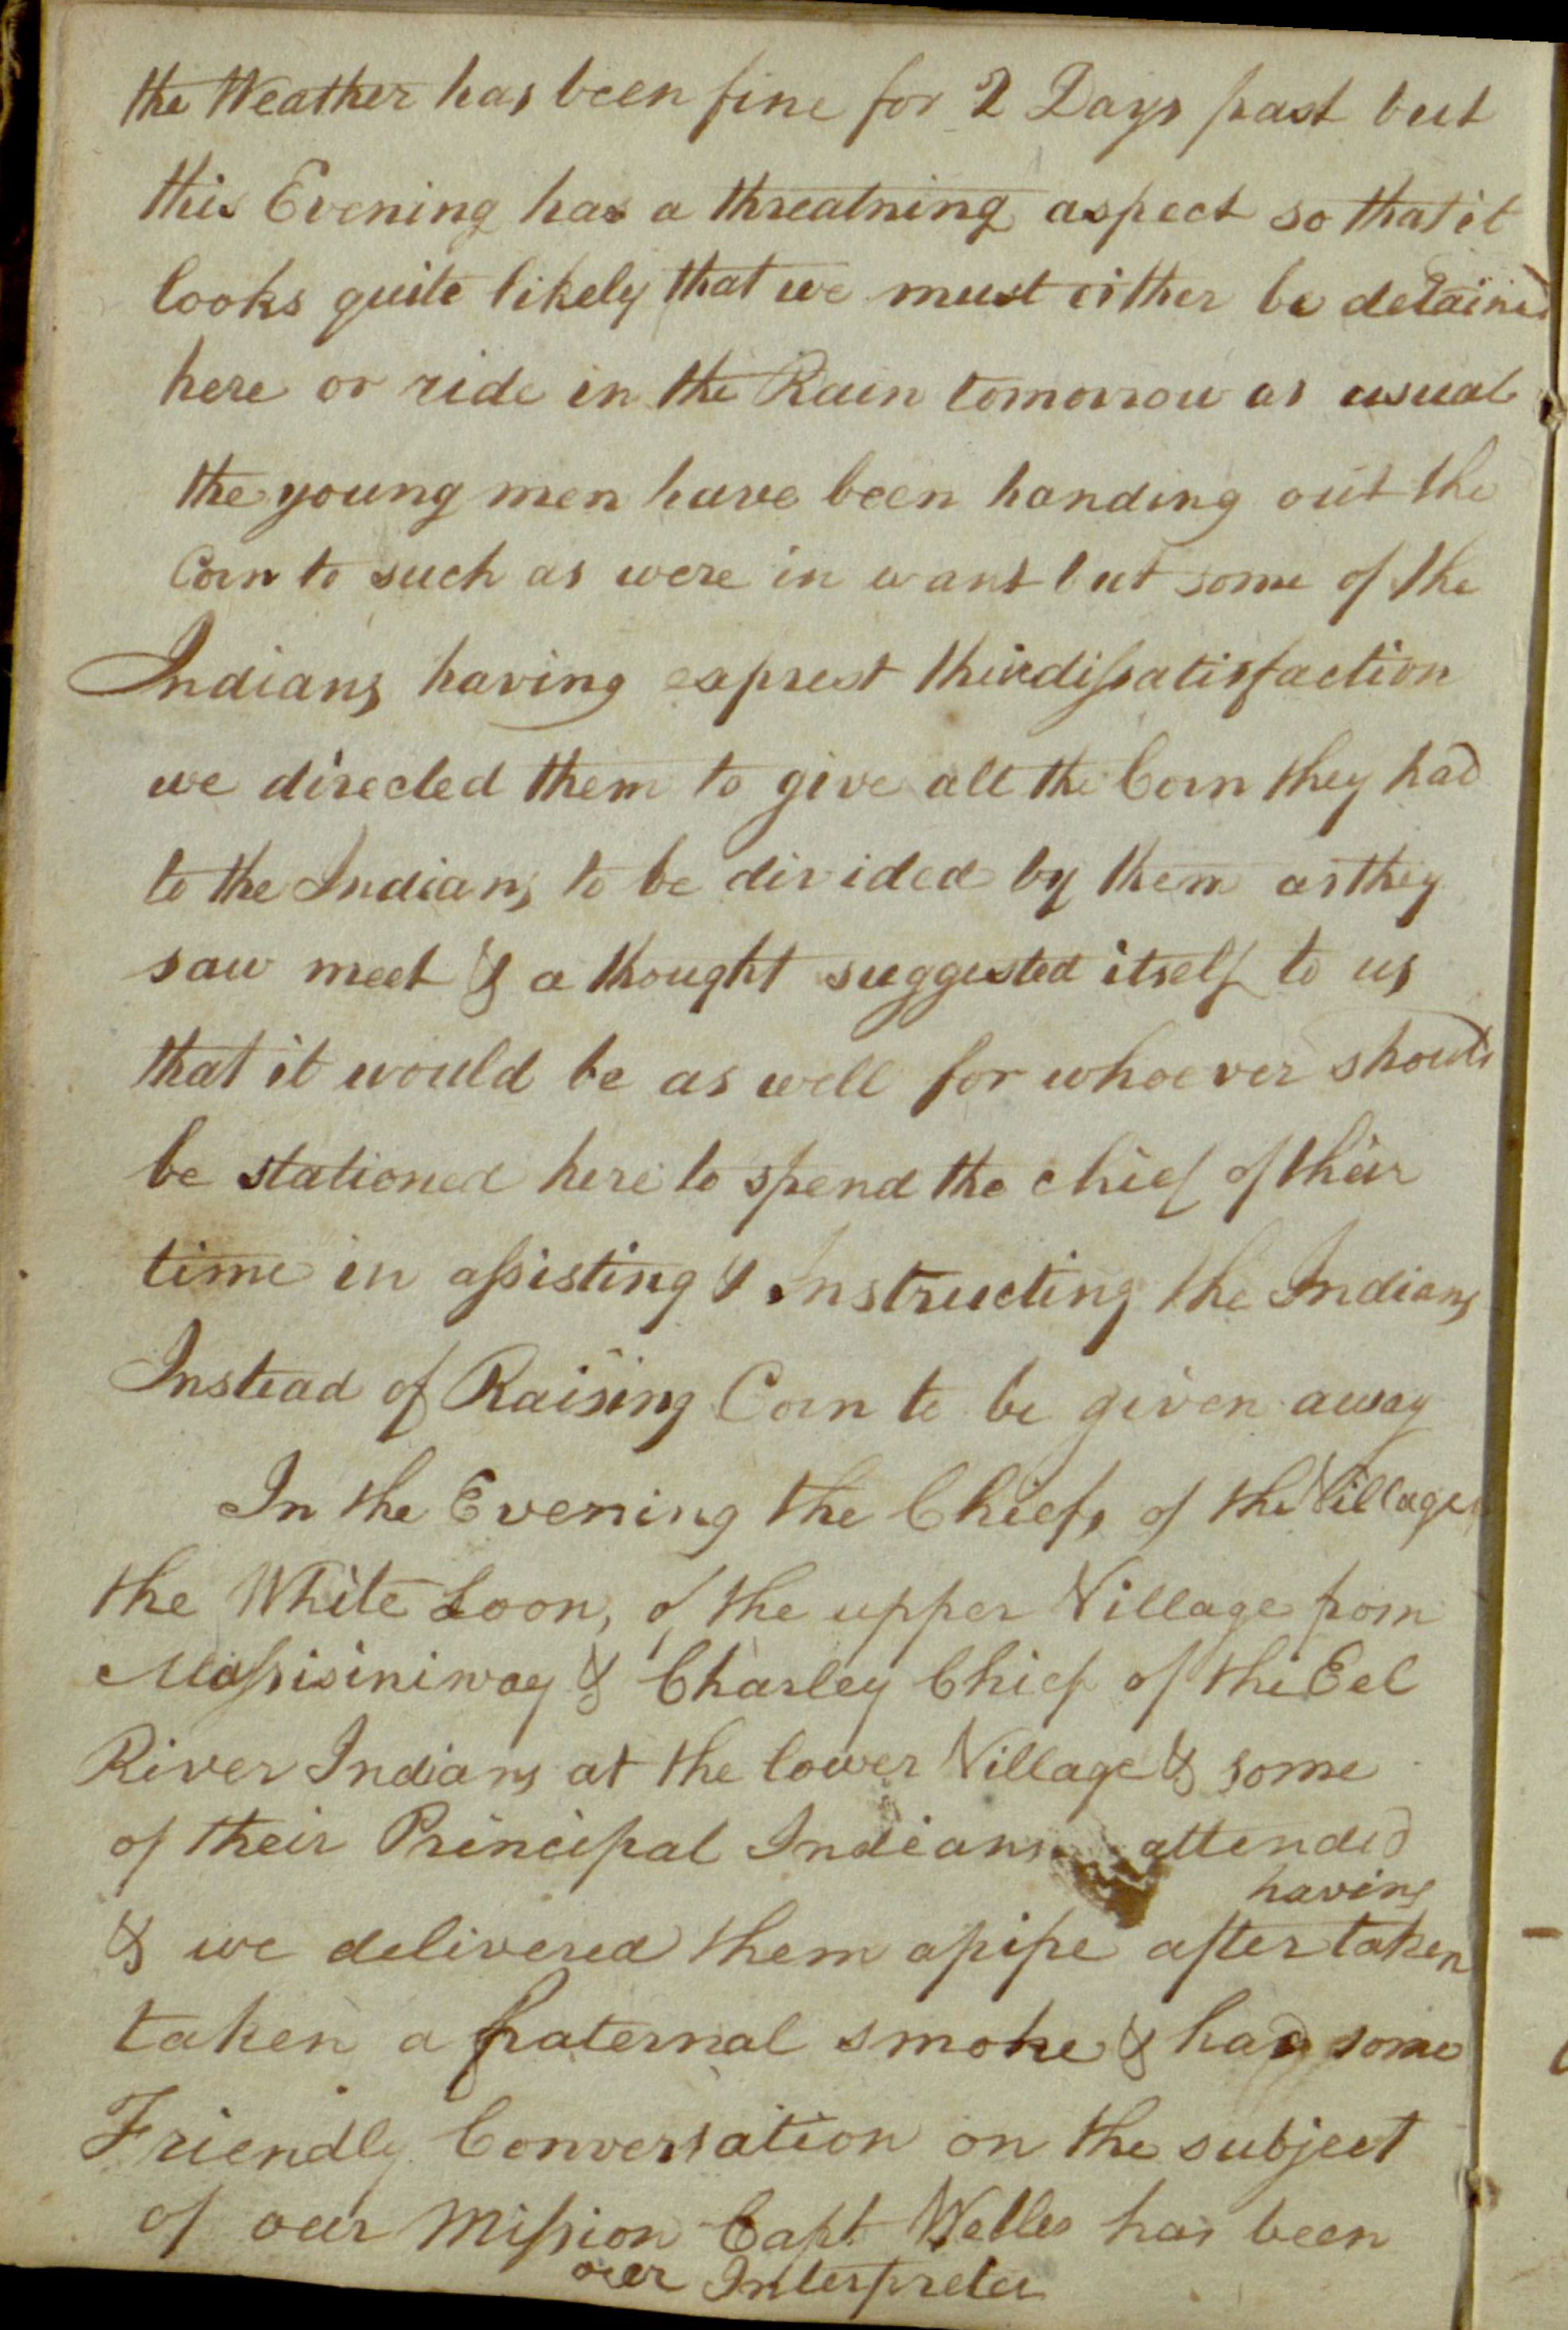 the Weather has been fine for 2 Days past but
this Evening has a threatning aspect so that it
looks quite likely that we must either be detained
here or ride in the Rain tomorrow as usual
the young men have been handing out the
Corn to such as were in want but some of the
Indians having exprest their dissatisfaction
we directed them to give all the Corn they had
to the Indians to be divided by them as they
saw meet & a thought suggested itself to us
that it would be as well for whoever should
be stationed here to spend the chief of their
time in assisting & Instructing the Indians
Instead of Raising Corn to be given away
In the Evening the Chiefs of the Villages
the White Loon, of the upper Village from
Massisiniway & Charley Chief of the Eel
River Indians at the lower Village & some
of their Principal Indians attended
having
& we delivered them a pipe after taken
taken a fraternal smoke & had some
Friendly Conversation on the subject
of our Mission Capt Welles has been
our Interpreter